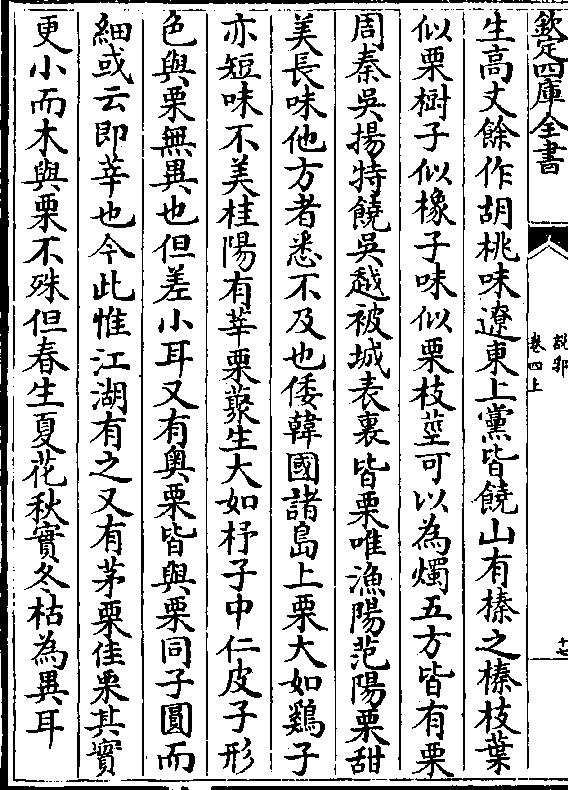 欽定四庫全書
說郛
卷四上
生高丈餘作胡桃味遼東上黨皆饒山有榛之榛枝葉
似栗樹子似橡子味似栗枝莖可以為燭五方皆有栗
周秦吳揚特饒吳越被城表裏皆栗唯漁陽范陽栗甜
美長味他方者悉不及也倭韓國諸島上栗大如鷄子
亦短味不美桂陽有莘栗藂生大如杼子中仁皮子形
色與栗無異也但差小耳又有奧栗皆與栗同子圓而
細或云即莘也今此惟江湖有之又有茅栗佳栗其實
更小而木與栗不殊但春生夏花秋實冬枯為異耳